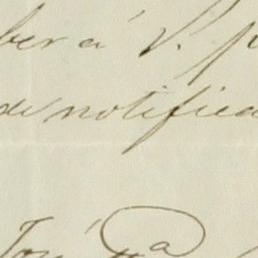 ber á V. p
de notifica
José